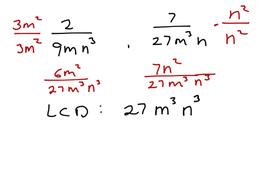 3m²/3m² 2/9mn³ , 7/27m³n · n²/n²
6m²/27m³n³ 7n²/27m³n³
LCD : 27m³n³